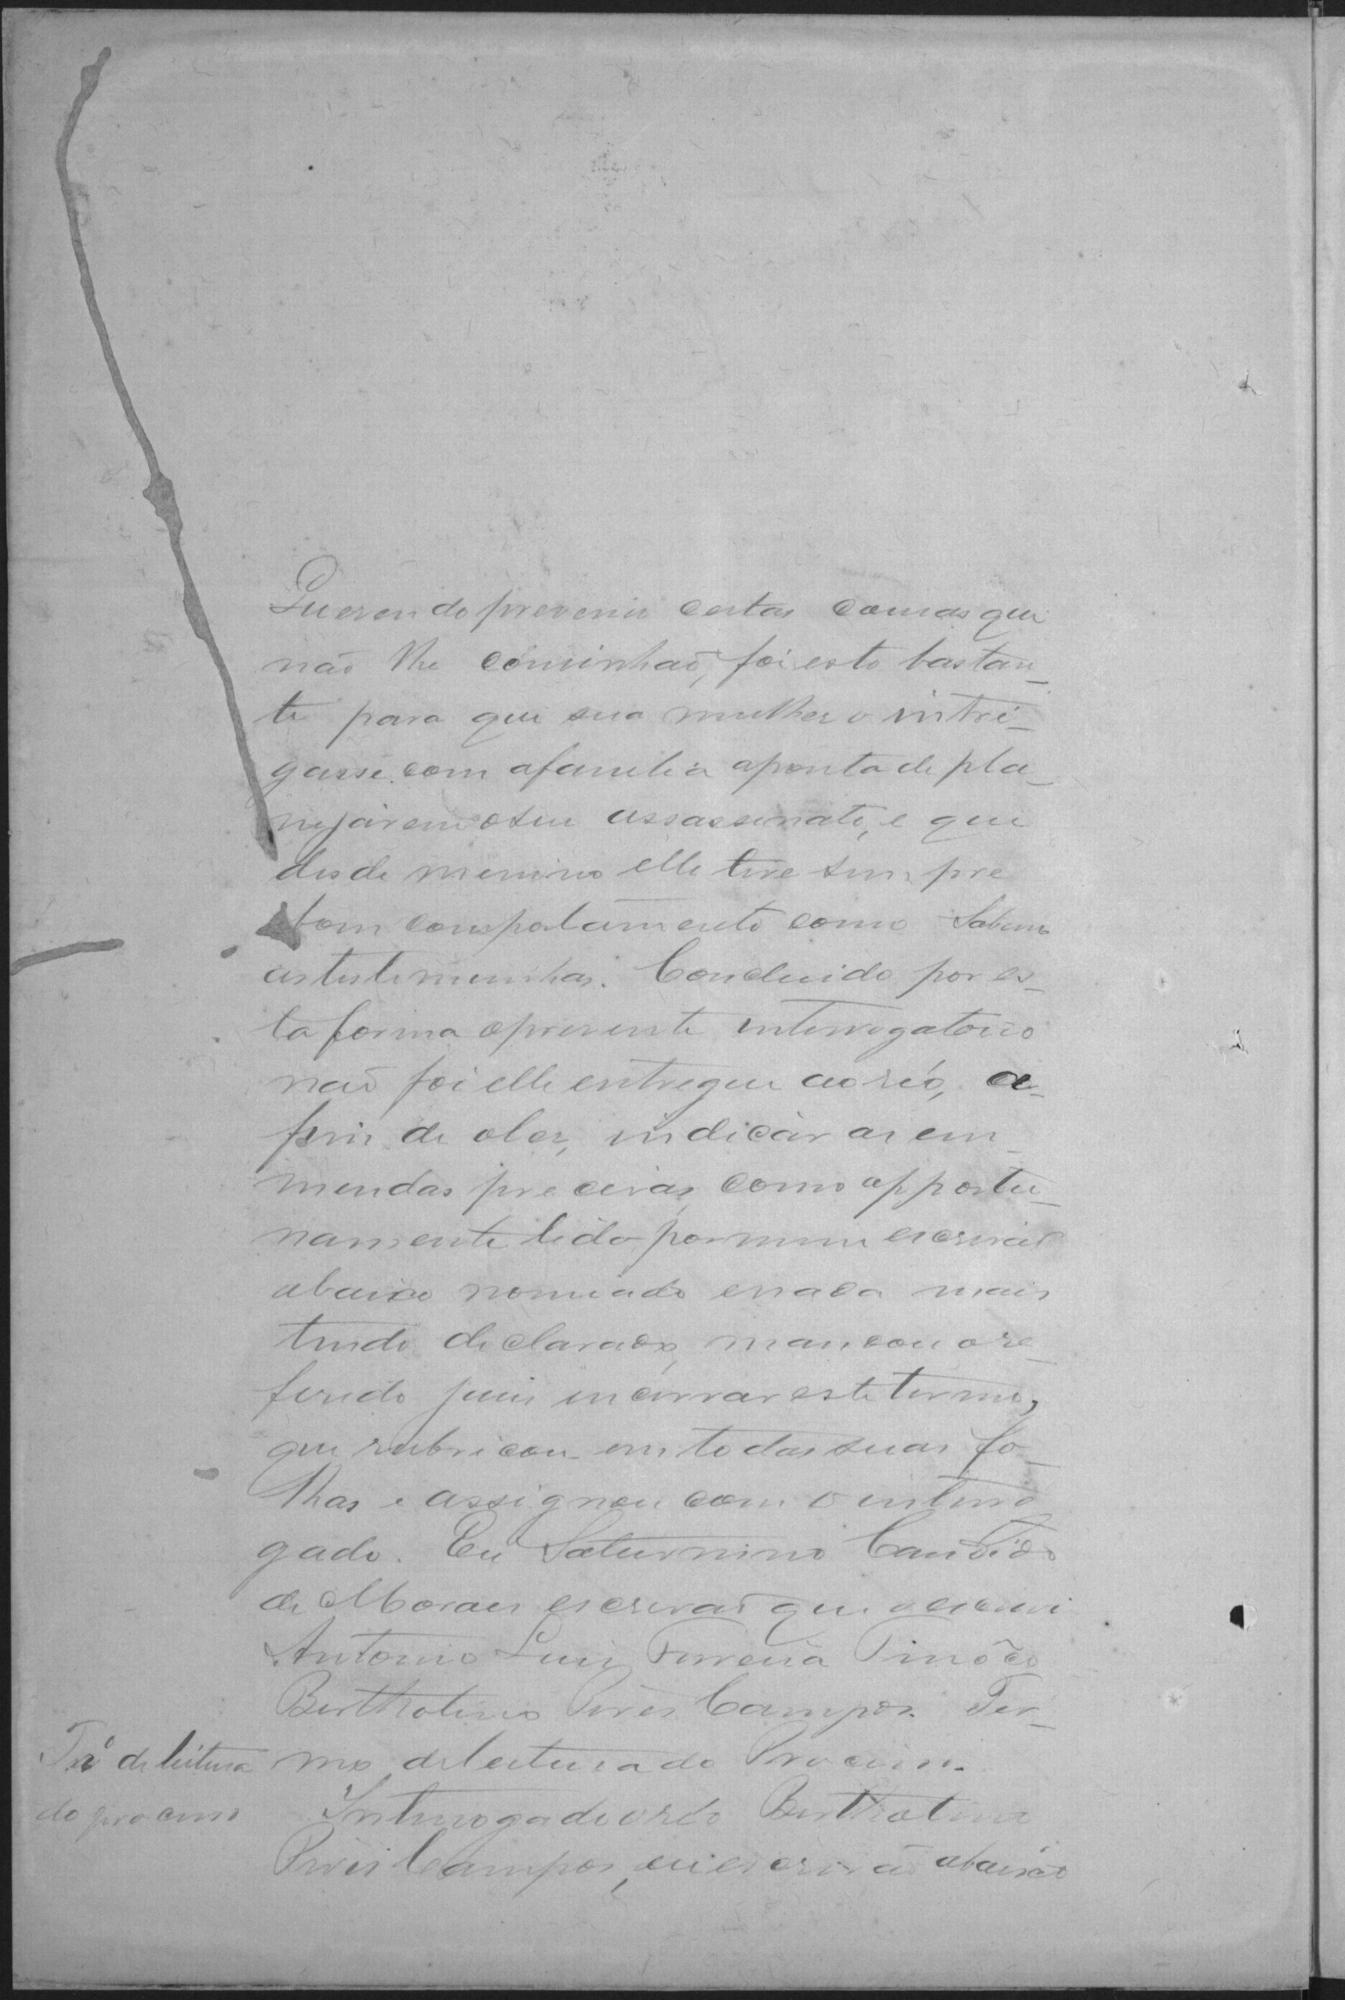 Querendo prevenir certas cousas que
não lhe convinhaõ, foi esto bastan_
te para que sua mulher o intri_
gasse com afamilia aponta de pla_
nejárem oseu assassinato, e que
desde menino elle teve sempre
bom comportamento como Sabem
as testemunhas. Concluido por es_
ta forma opresente interrogatorio
naõ foi elle entregue ao réo, a_
fim de oler, indicár as em_
mendas precisas, como opportu_
namente lido por mim escrivaõ
abaixo nomeado enada mais
tendo declarado, mandou o re_
ferido juiz incerrar este termo,
que rubricou em todas suas fo_
lhas e assignou com o interro
gado. Eu Saturnino Candido
de Moraes escrivaõ que o escrevi
Antonio Luiz Ferreira Tinôco
Bertholino Pires Campos. Ter_
Trº de leitura mo de leitura do Processo.
do processo Interrogado o réo Bertholino
Pires Campos, eu escrivão abaixo